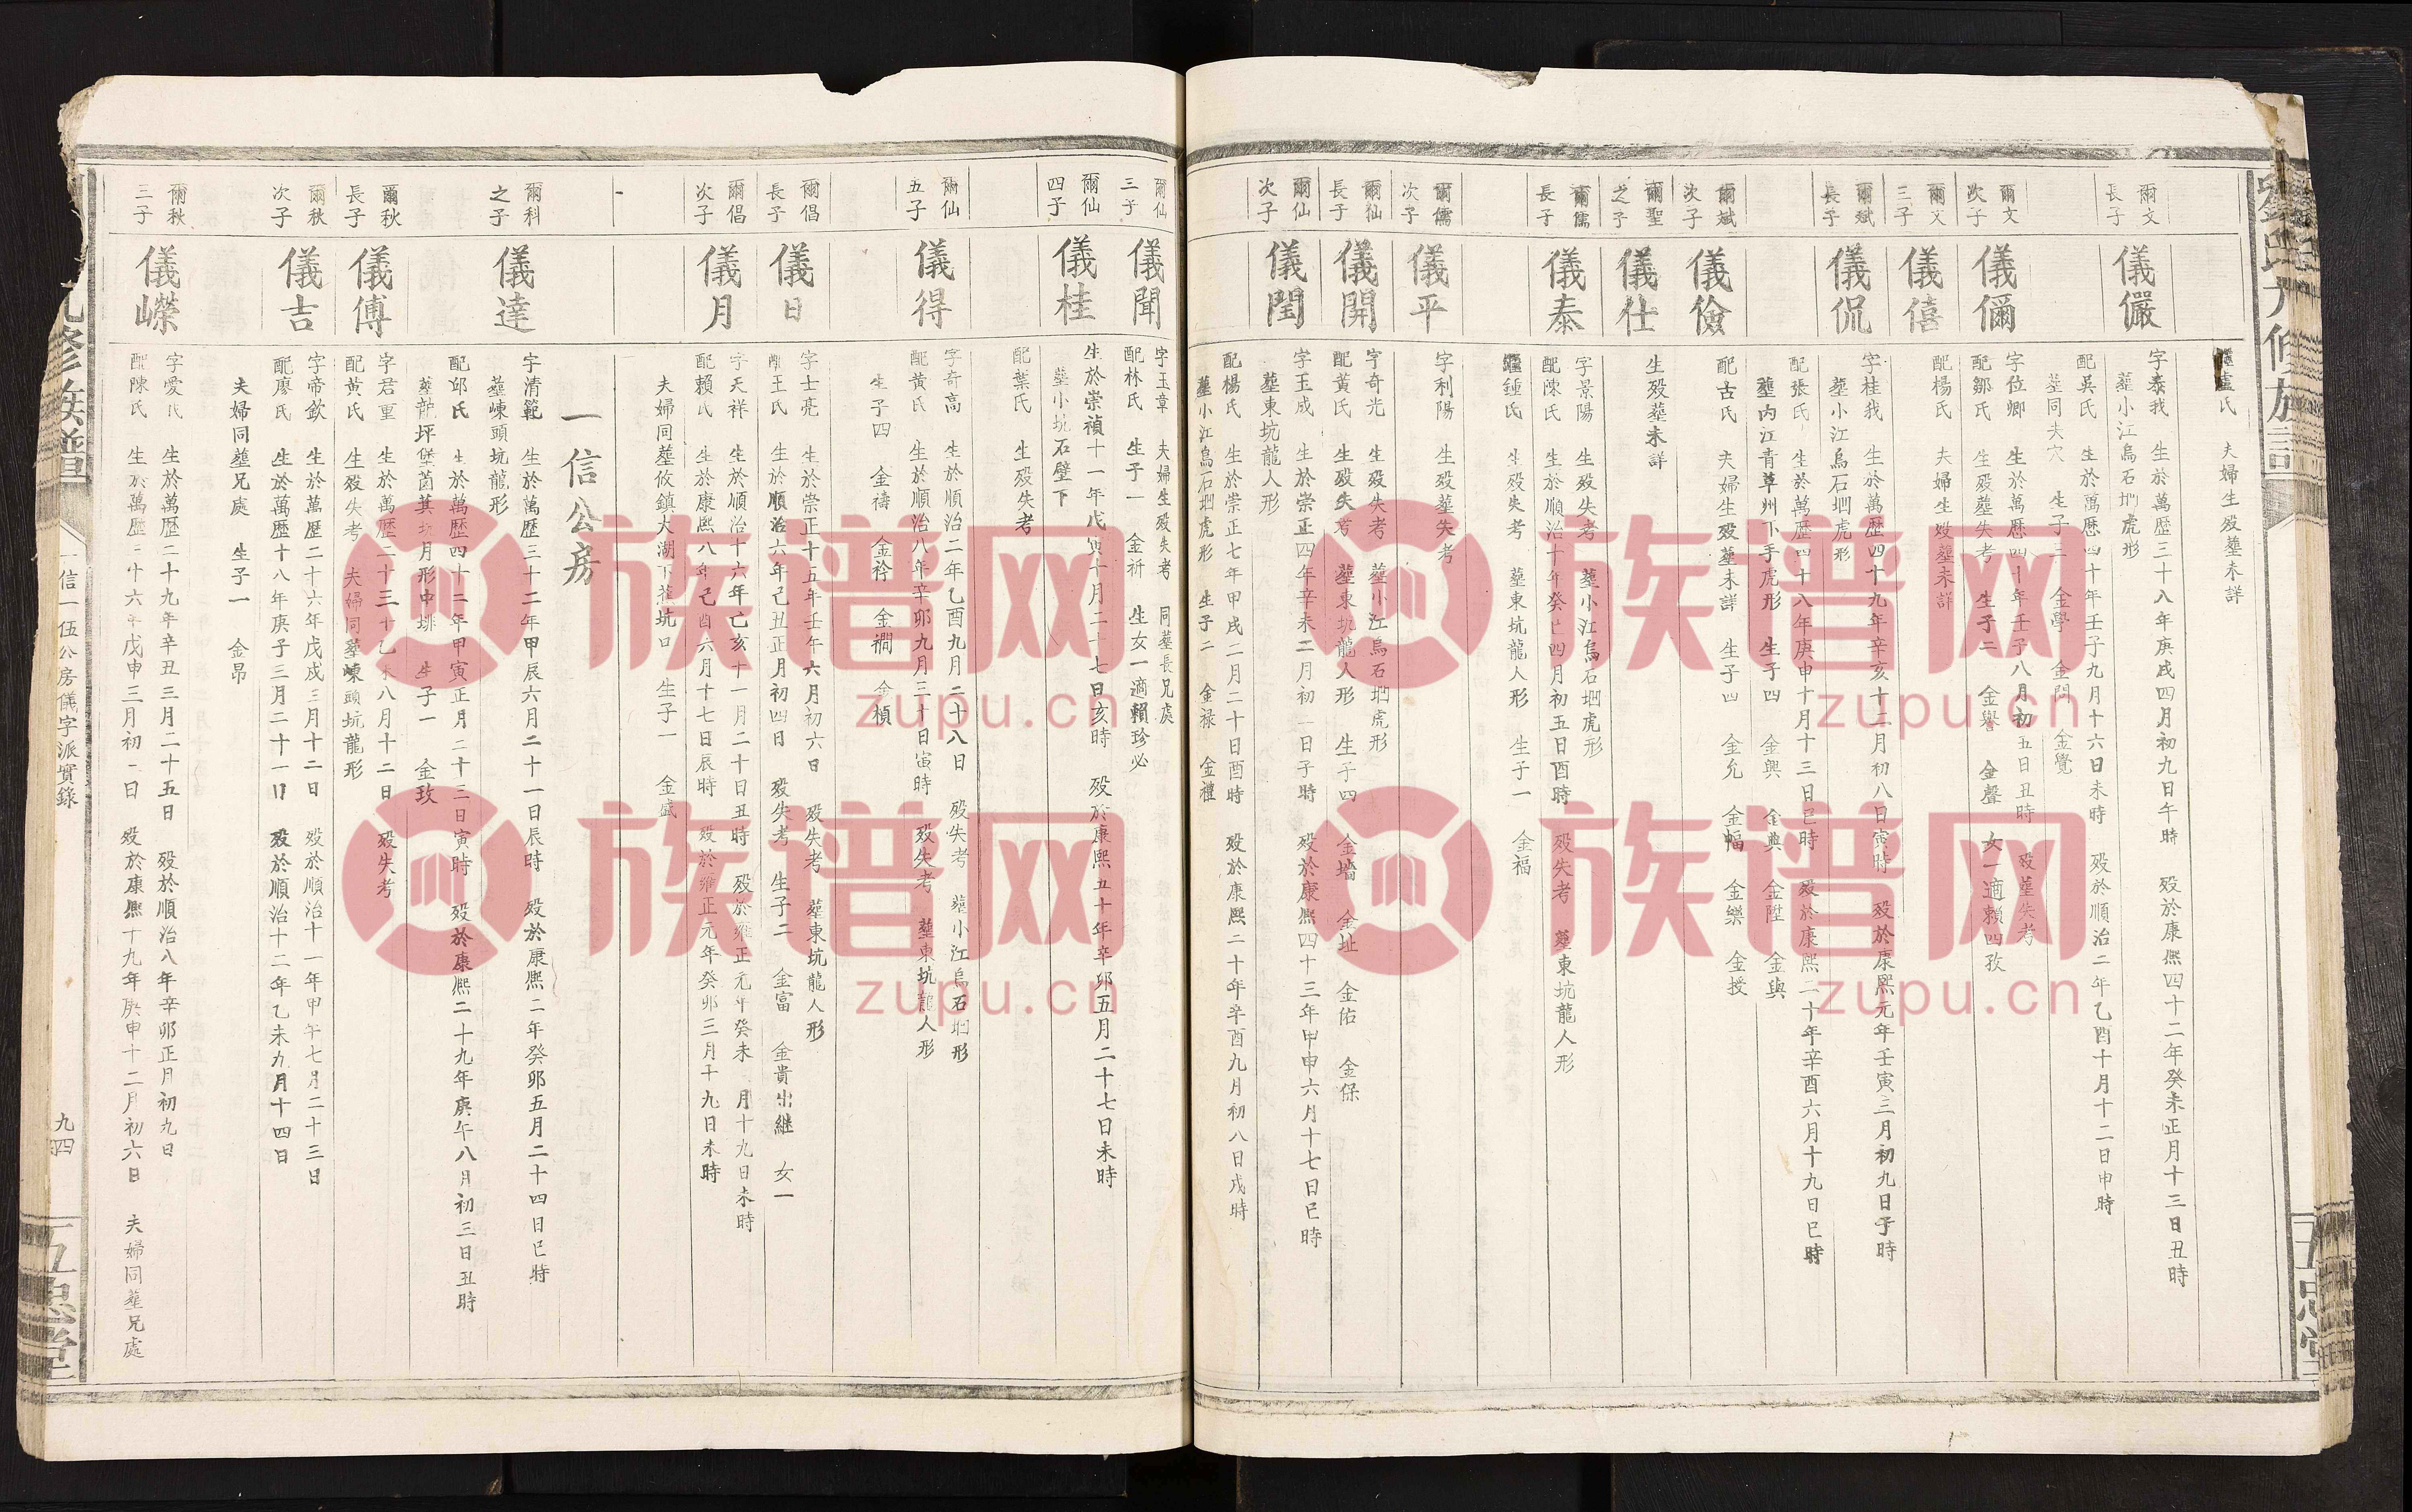 氏 夫婦生殁塟未詳
爾文長子
儀儼
字泰我 生於萬歷三十八年庚戌四月初九日午時 殁於康熙四十二年癸未正月十三日丑時
塟小江烏石堋虎形
配吳氏 生於萬歷四十年壬子九月十六日未時 殁於順治二年乙酉十月十二日申時
塟同夫穴 生子三 金學 金問 金覺
爾文次子
儀儞
字位卿 生於萬歷四十年壬子八月初五日丑時 殁塟失考
配鄒氏 生殁塟失考 生子二 金譽 金聲 女一適賴四孜
配楊氏 夫婦生殁塟未詳
爾文三子
儀僖
爾斌長子
儀侃
字桂我 生於萬歷四十九年辛亥十二月初八日寅時 殁於康熙元年壬寅三月初九日子時
塟小江烏石堋虎形
配張氏 生於萬歷四十八年庚申十月十三日巳時 殁於康熙二十年辛酉六月十九日巳時
塟內江青草州下手虎形 生子四 金興 金典 金陞 金與
爾斌次子
儀儉
配古氏 夫婦生殁塟未詳 生子四 金允 金幅 金樂 金授
爾聖之子
儀仕
生殁塟未詳
爾儒長子
儀泰
字景陽 生殁失考 塟小江烏石堋虎形
配陳氏 生於順治十年癸巳四月初五日酉時 殁失考 塟東坑龍人形
繼鍾氏 生殁失考 塟東坑龍人形 生子一 金福
爾儒次子
儀平
字利陽 生殁塟失考
爾仙長子
儀開
字奇光 生殁失考 塟小江烏石堋虎形
配黃氏 生殁失考 塟東坑龍人形 生子四 金墻 金址 金佑 金保
爾仙次子
儀閏
字玉成 生於崇正四年辛未二月初一日子時 殁於康熙四十三年甲申六月十七日巳時
塟東坑龍人形
配楊氏 生於崇正七年甲戌二月二十日酉時 殁於康熙二十年辛酉九月初八日戌時
塟小江烏石堋虎形 生子二 金祿 金禮
爾仙三子
儀聞
字玉章 夫婦生殁失考 同塟長兄處
配林氏 生子一 金祈 生女一適賴珍必
爾仙四子
儀桂
生於崇禎十一年戊寅十月二十七日亥時 殁於康熙五十年辛卯五月二十七日未時
塟小坑石壁下
配葉氏 生殁失考
爾仙五子
儀得
字奇高 生於順治二年乙酉九月二十八日 殁失考 塟小江烏石堋形
配黃氏 生於順治八年辛卯九月三十日寅時 殁失考 塟東坑龍人形
生子四 金禱 金衿 金襉 金楨
爾倡長子
儀日
字士亮 生於崇正十五年壬午六月初六日 殁失考 塟東坑龍人形
配王氏 生於順治六年己丑正月初四日 殁失考 生子二 金富 金貴出繼 女一
爾倡次子
儀月
字天祥 生於順治十六年亡亥十一月二十日丑時 殁於雍正元年癸未 月十九日未時
配賴氏 生於康熙八年己酉六月十七日辰時 殁於雍正元年癸卯三月十九日未時
夫婦同塟攸鎮大湖下蕉坑口 生子一 金盛
一信公房
爾科之子
儀達
字清範 生於萬歷三十二年甲辰六月二十一日辰時 殁於康熙二年癸卯五月二十四日巳時
塟崠頭坑龍形
配邱氏 生於萬歷四十二年甲寅正月二十三日寅時 殁於康熙二十九年庚午八月初三日丑時
塟龍坪堡茵萁坑月形中排 生子一 金玫
爾秋長子
儀傅
字君重 生於萬歷二十三年乙未八月十二日 殁失考
配黃氏 生殁失考 夫婦同塟崠頭坑龍形
爾秋次子
儀吉
字帝欽 生於萬歷二十六年戊戌三月十二日 殁於順治十一年甲午七月二十三日
配廖氏 生於萬歷十八年庚子三月二十一日 殁於順治十二年乙未九月十四日
夫婦同塟兄處 生子一 金昂
爾秋三子
儀嶸
字愛氏 生於萬歷二十九年辛丑三月二十五日 殁於順治八年辛卯正月初九日
配陳氏 生於萬歷三十六年戊申三月初一日 殁於康熙十九年庚申十二月初六日 夫婦同塟兄處
九修族譜
一信一伍公房儀字派實錄
九四
五忠堂
族谱网
zupu.cn
族谱网
zupu.cn
族谱网
zupu.cn
族谱网
zupu.cn